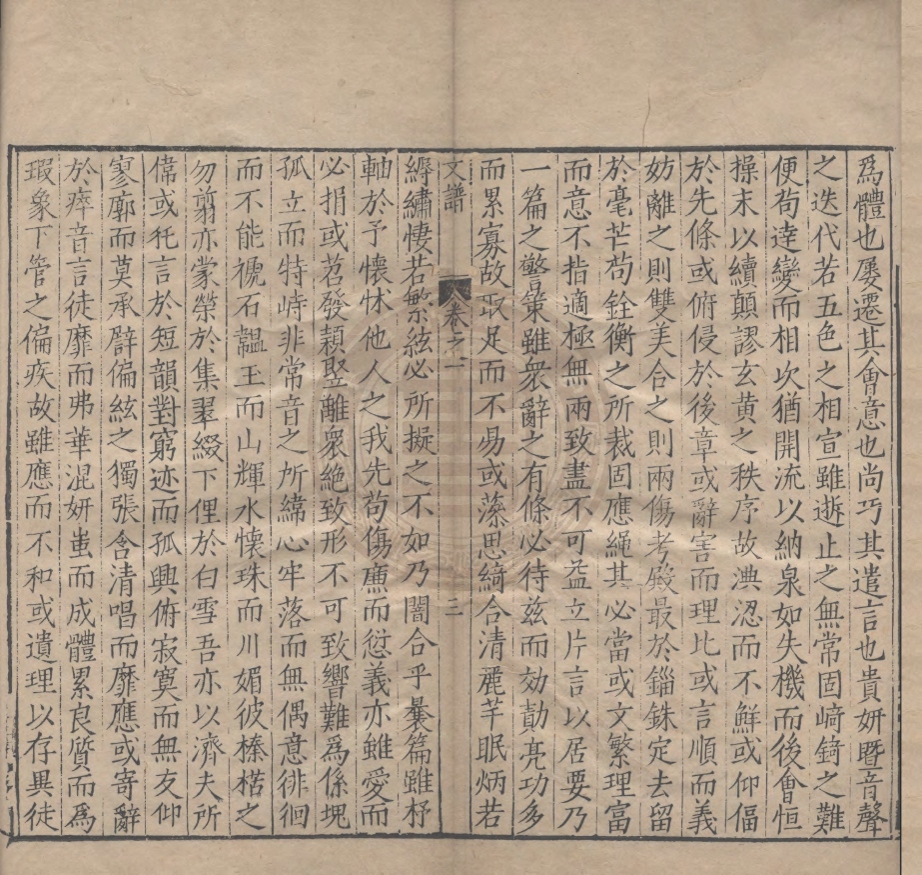 爲體也屢遷其會意也尚巧其遣言也貴妍曁音聲
之迭代若五色之相宣雖逝止之無常固﨑錡之難
便苟達變而相次猶開流以納泉如失機而後會恒
操末以續顛謬玄黃之秩序故淟涊而不鮮或仰偪
於先條或俯侵於後章或辭害而理比或言順而義
妨離之則雙美合之則兩傷考殿最於錙銖定去留
於毫芒苟銓衡之所裁固應繩其必當或文繁理富
而意不指適極無兩致盡不可益立片言以居要乃
一篇之警策雖衆辭之有條必待兹而効勣亮功多
而累寡故取足而不易或藻思綺合清麗芊眠炳若
文譜
卷之一
三
縟繡悽若繁絃必所擬之不如乃闇合乎曩篇雖杼
軸於予懷怵他人之我先苟傷廉而愆義亦雖愛而
必捐或苕發穎竪離衆絶致形不可致響難爲係塊
孤立而特峙非常音之所緯心牢落而無偶意徘徊
而不能褫石韞玉而山輝水懷珠而川媚彼榛楛之
勿翦亦蒙榮於集翠綴下俚於白雪吾亦以濟夫所
偉或托言於短韻對窮迹而孤興俯寂寞而無友仰
寥廓而莫承譬偏絃之獨張含清唱而靡應或寄辭
於瘁音言徒靡而弗華混妍蚩而成體累良質而爲
瑕象下管之偏疾故雖應而不和或遺理以存異徒